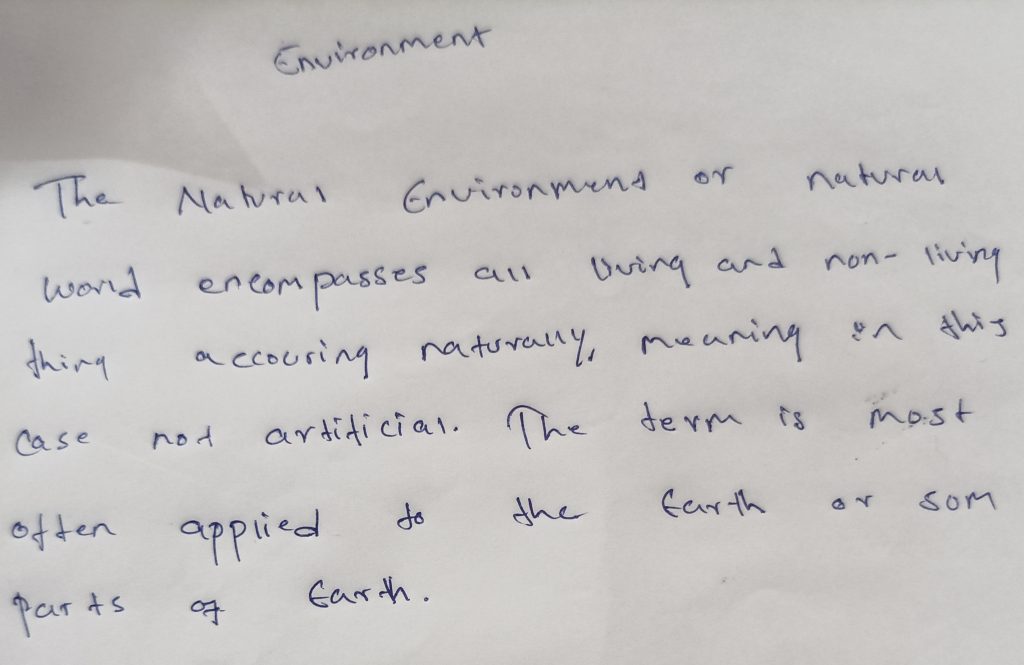 Environment
The Natural Environmend or natural
world encompasses all living and non-living
thing accouring naturally, meaning in this
case not artificial. The term is most
often applied to the Earth or som
parts of Earth.